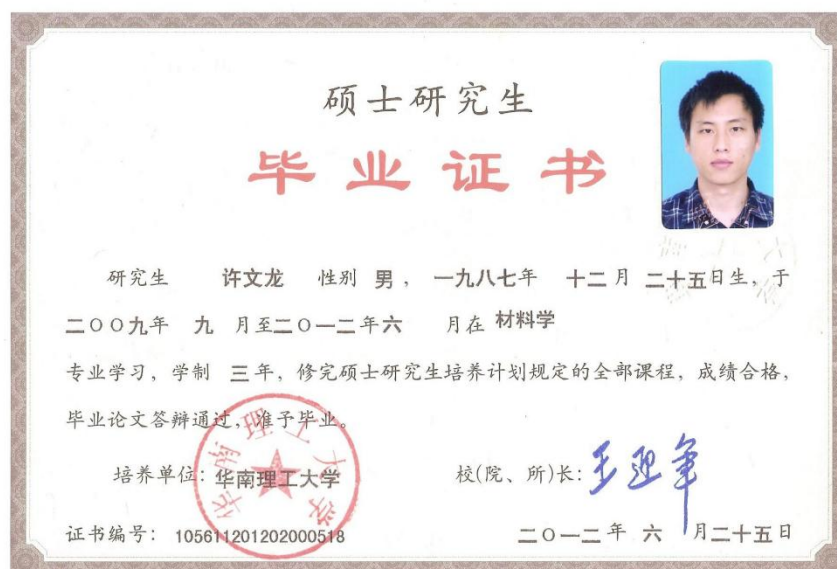 硕士研究生
毕业证书
研究生 许文龙 性别 男， 一九八七年 十二月 二十五日生，于
二〇〇九年 九 月至二〇一二年六 月在 材料学
专业学习，学制 三年，修完硕士研究生培养计划规定的全部课程，成绩合格，
毕业论文答辩通过，准予毕业。
培养单位：华南理工大学
华南理工大学
校(院、所)长：王迎军
证书编号： 105611201202000518
二〇一二年 六 月二十五日